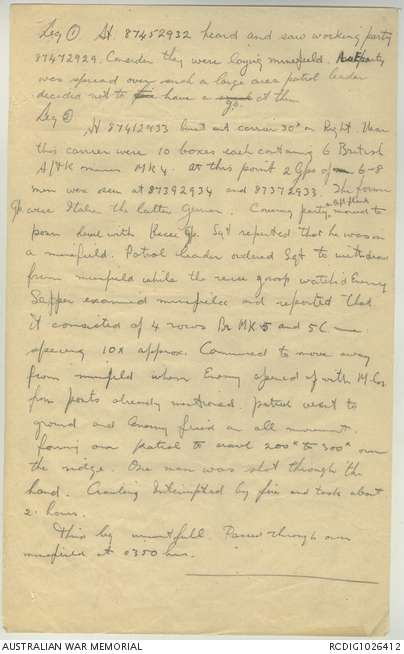 Leg ① At 87452932 heard and saw working party
87472929. Consider they were laying minefield. As E party
was spread over such a large area patrol leader
decided not to have a go at them
Leg ②
At 87412933 burnt out carrier 30x on Right. Near
this carrier were 10 boxes each containing 6 British
A/TK mines MK 4. At this point 2 Gps of 6-8
men were seen at 87392934 and 87372933. The former
Gp were Italian the latter German. Covering party moved to
posn level with Recce Gp. Sgt reported that he was on
a minefield. Patrol leader ordered Sgt to withdraw
from minefield while the recce group watched Enemy
Sapper examined minefield and reported that
it consisted of 4 rows Br MK 5 and 5C
spacing 10x approx. Continued to move away
from minefield when Enemy opened up with M.Gs.
from posts already mentioned. Patrol went to
ground and Enemy fired on all movement.
forcing our patrol to crawl 200x to 300x over
the ridge. One man was shot through the
hand. Crawling interrupted by fire and took about
2 hours.
This leg uneventful. Passed through own
minefield at 0350 hrs.
AUSTRALIAN WAR MEMORIAL
RCDIG1026412